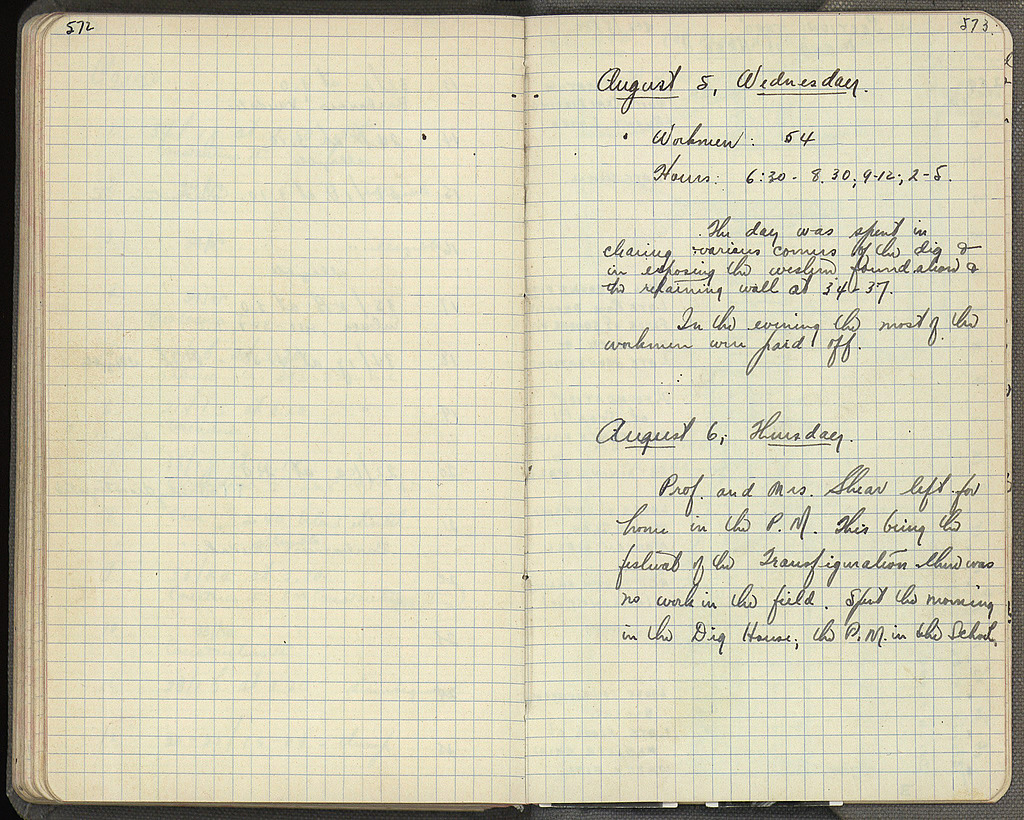 572
573.
August 5, Wednesday.
Workmen: 54
Hours: 6:30 - 8.30; 9-12; 2-5.
The day was spent in
clearing various corners of the dig &
in exposing the western foundations &
the retaining wall at 34-37.
In the evening the most of the
workmen were paid off.
August 6, Thursday.
Prof. and Mrs. Shear left for
home in the P.M. This being the
festival of the Transfiguration there was
no work in the field. Spent the morning
in the Dig House; the P.M. in the School.